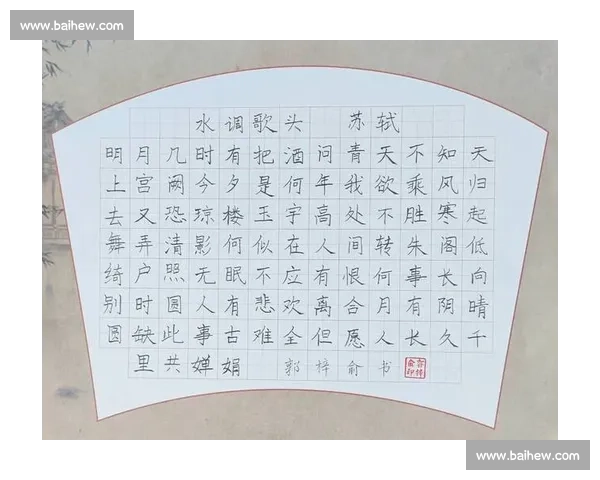 www.baihew.com
水调歌头 苏轼
明月几时有把酒问青天不知天
上宫阙今夕是何年我欲乘风归
去又恐琼楼玉宇高处不胜寒起
舞弄清影何似在人间转朱阁低
绮户照无眠不应有恨何事长向
别时圆人有悲欢离合月有阴晴
圆缺此事古难全但愿人长久千
里共婵娟 郭梓俞书
www.baihew.com